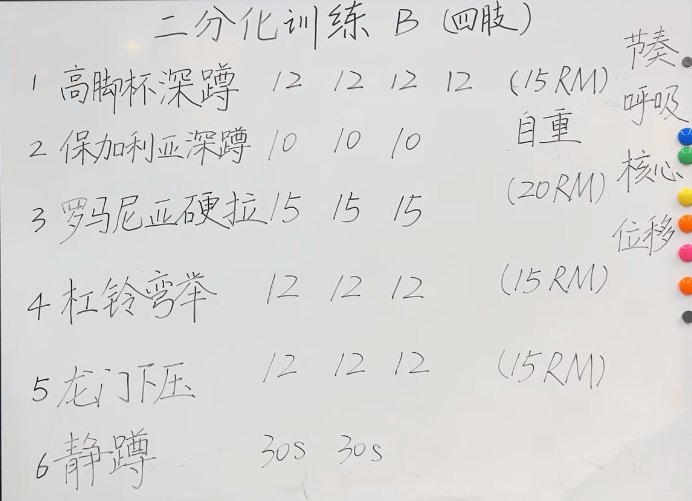 二分化训练 B (四肢)
1 高脚杯深蹲 12 12 12 12 (15RM)
2 保加利亚深蹲 10 10 10 自重
3 罗马尼亚硬拉 15 15 15 (20RM)
4 杠铃弯举 12 12 12 (15RM)
5 龙门下压 12 12 12 (15RM)
6 静蹲 30s 30s
节奏
呼吸
核心
位移